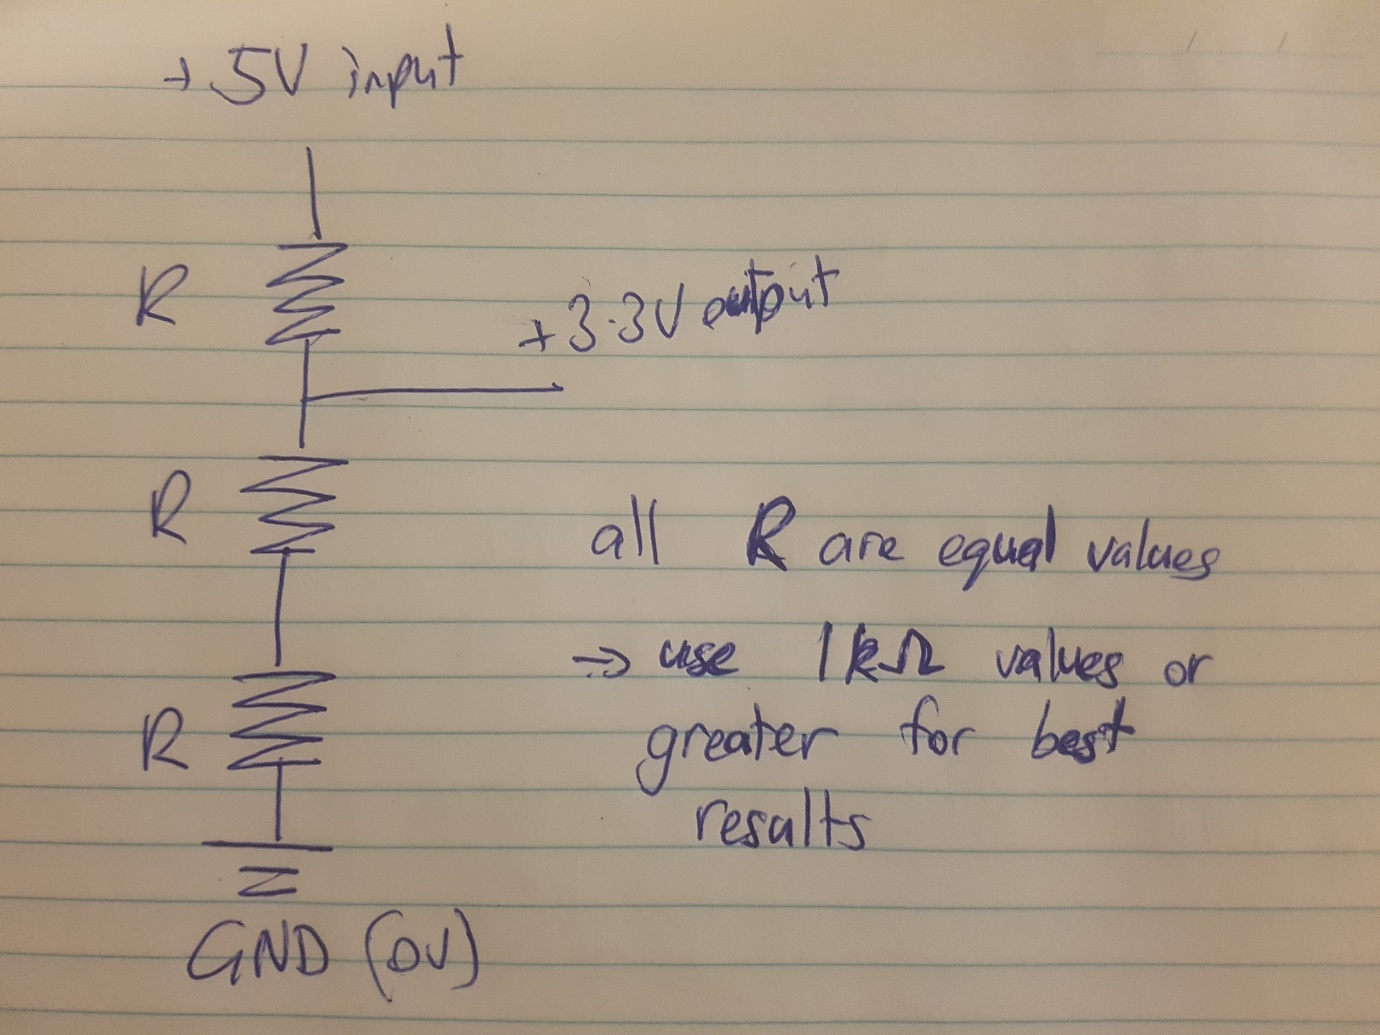 + 5V input
R
+3.3V output
R
all R are equal values
→ use 1kΩ values or
greater for best
results
R
GND (0V)